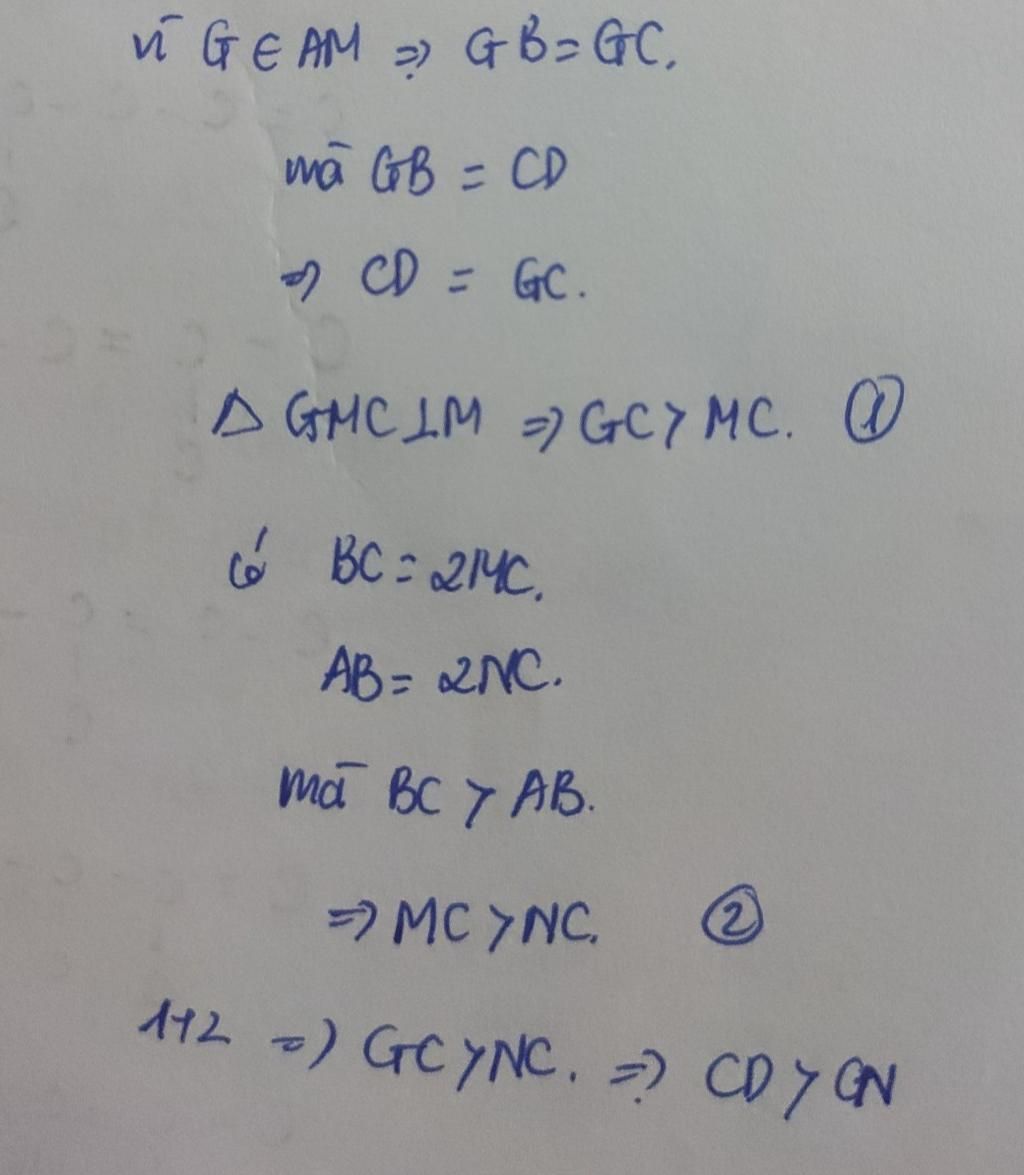 vì G ∈ AM ⇒ GB = GC.
mà GB = CD
⇒ CD = GC.
Δ GMC ⊥ M ⇒ GC > MC. ①
có BC = 2MC.
AB = 2NC.
mà BC > AB.
⇒ MC > NC. ②
1+2 ⇒ GC > NC. ⇒ CD > CN